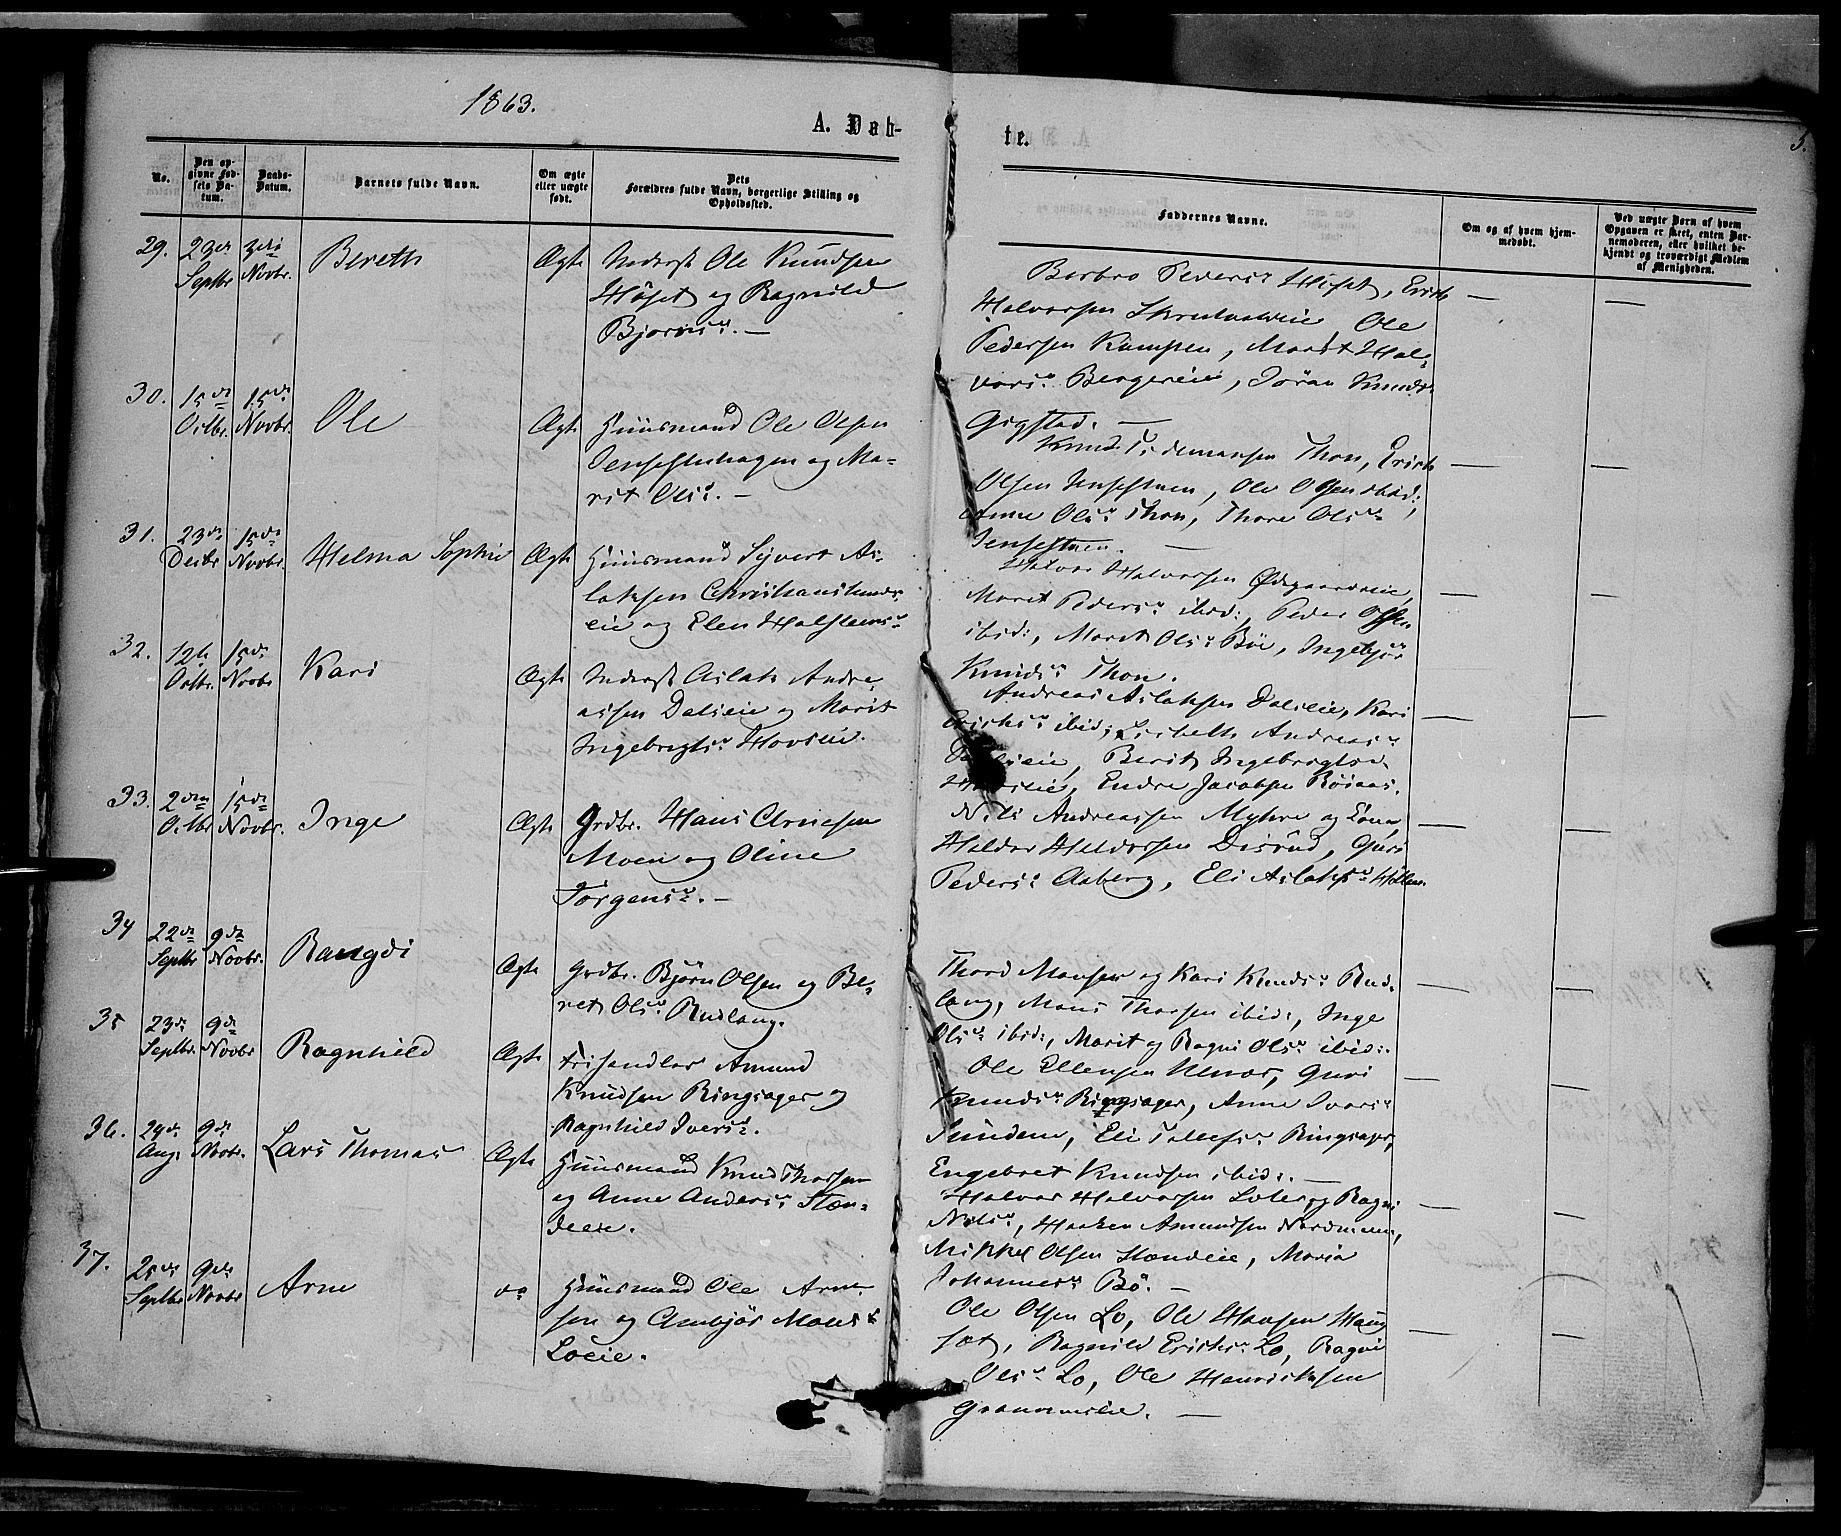 1863.
A. Døb-
te.
5.
No.
Den op-
givne Fød-
sels Da-
tum.
Daabs-
Datum.
Barnets fulde Navn.
Om ægte
eller uægte
født.
Dets
Forældres fulde Navn, borgerlige Stilling og
Opholdssted.
Faddernes Navne.
Om og af hvem hjem-
medøbt.
Ved uægte Børn af hvem
Opgaven er skeet, enten Bar-
nemoderen, eller hvilket be-
kjendt og troværdigt Medlem
af Menigheden.
29.
23de
Septbr
3die
Novbr.
Bereth
Ægte
Inderst Ole Knudsen
Høset og Ragnild
Bjørnsd. —
Barbro Pedersd Høset, Erich
Halvorsen, Ole
Pedersen Kampen, Marit Hal-
vorsd. Bergereie, Jøran Knudsd
Gigstad. —
30.
15de
Octbr.
15de
Novbr.
Ole
Ægte
Huusmand Ole Olsen
Jensestuhagen og Ma-
rit Olsd. —
Knud Tidemansen Thon, Erich
Olsen Jensestuen, Ole Olsen ibid:,
Anne Olsd Thon, Thore Olsd
Jensestuen. —
31.
23de
Decbr
15de
Novbr.
Helma Sophie
Ægte
Huusmand Syvert As-
laksen Christianslunds-
eie og Elen Halsteensd
Halvor Halvorsen Ødegaardseie,
Marit Pedersd ibid:, Peder Olsen
ibid:, Marit Olsd Bøe, Ingebjør
Knudsd Thon.
32.
12te
Octbr.
15de
Novbr
Kari
Ægte
Inderst Aslak Andre-
assen Dalseie og Marit
Ingebrigtsd Hovseie.
Andreas Aslaksen Dalseie, Kari
Erichsd ibid:, Lisbeth Andreasd
Berit Ingebrigtsd
Endre Jacobsen Røisaas.
33.
2den
Octbr
15de
Novbr.
Inge
Ægte
Grdbr. Hans Arnesen
Moen og Oline
Jørgensd. —
Nils Andreassen Myhre og Kone,
Haldor Haldorsen Disrud, Guri
Pedersd Aaberg, Eli Aslaksd Hølen.
34
22de
Septbr
9de
Novbr.
Rangdi
Ægte
Grdbr. Bjørn Olsen og Be-
ret Olsd. Rudlang.
Thord Monsen og Kari Knudsd Rud-
lang, Mons Thorsen ibid:, Inge
Olsd ibid:, Marit og Ragni Olsd ibid:.
35
23de
Septbr.
9de
Novbr
Ragnhild
Ægte
Frihandler Amund
Knudsen Ringsager og
Ragnhild Iversd.
Ole Ellensen, Guri
Knudsd Ringsager, Anne Ivarsd
Sundem, Eli Tollefsd Ringsager,
Engebret Knudsen ibid:. —
36.
24de
Aug.
9de
Novbr.
Lars Thomas
Ægte
Huusmand Knud Thorsen
og Anne Andersd. Støn-
deeie.
Halvor Halvorsen og Ragni
Nilsd, Haaken Amundsen
Mikkel Olsen Støndeie, Maria
Johannesd. Bø. —
37.
25de
Septbr
9de
Novbr
Arne
do
Huusmand Ole Arne-
sen og Ambjør Monsd
Loeie.
Ole Olsen Lo, Ole Hansen Haug-
sæt, Ragnild Erichsd. Lo, Ragni
Olsd Lo, Ole Henrichsen
—